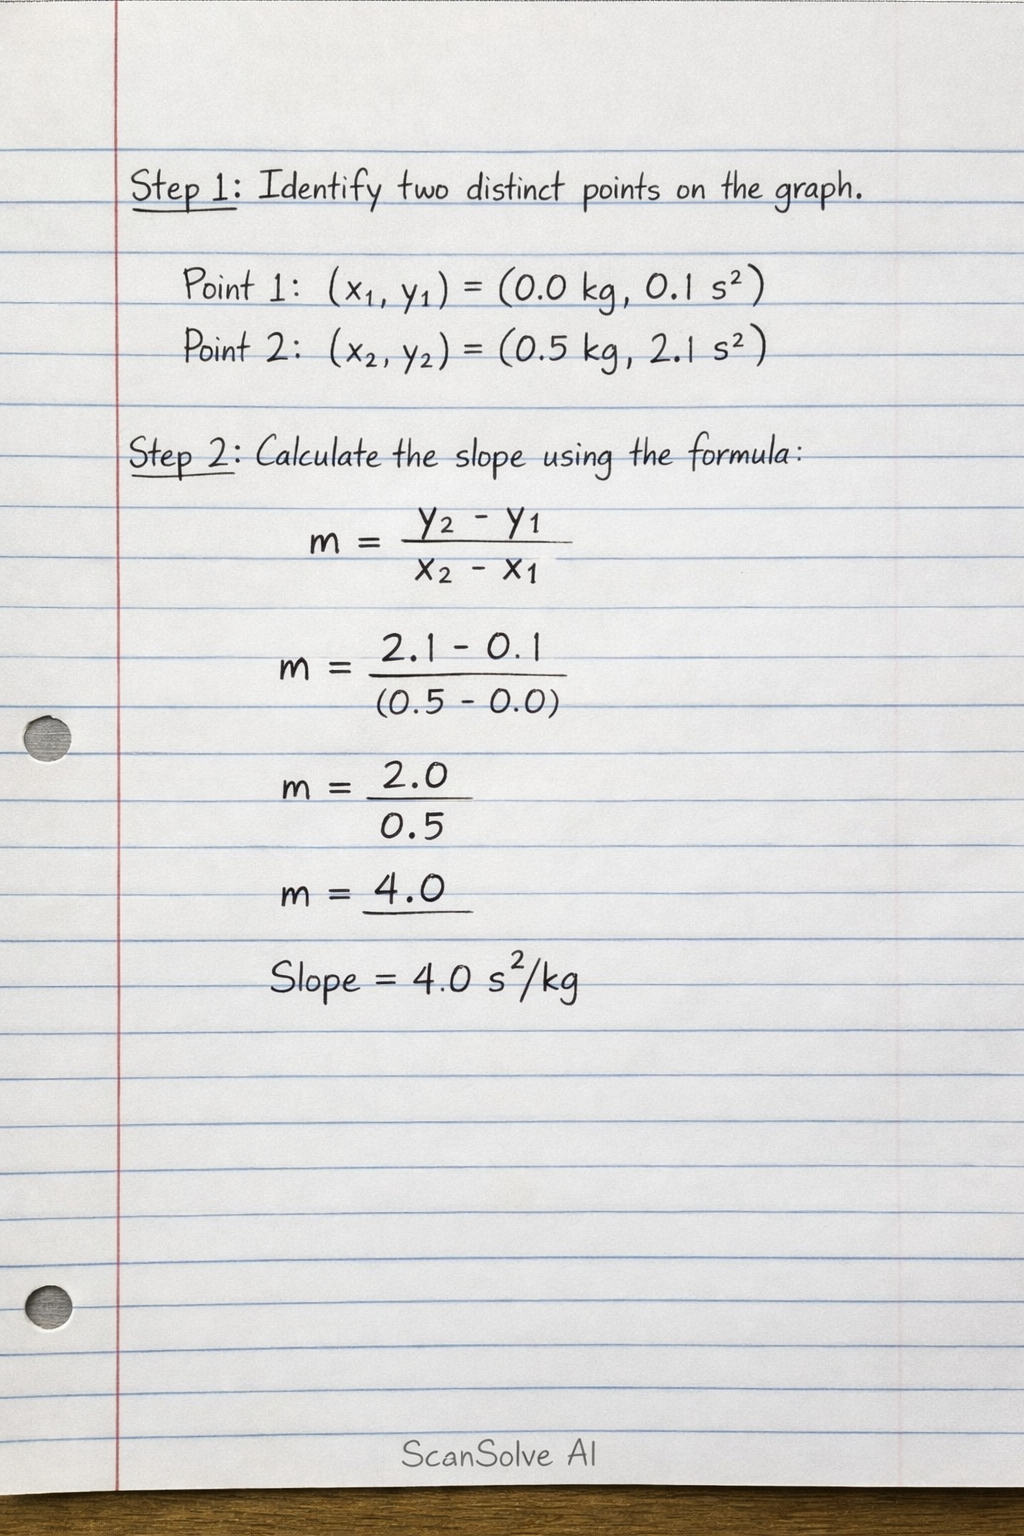 Step 1: Identify two distinct points on the graph.
Point 1: (x₁, y₁) = (0.0 kg, 0.1 s²)
Point 2: (x₂, y₂) = (0.5 kg, 2.1 s²)
Step 2: Calculate the slope using the formula:
m = y₂ - y₁ / x₂ - x₁
m = 2.1 - 0.1 / (0.5 - 0.0)
m = 2.0 / 0.5
m = 4.0
Slope = 4.0 s²/kg
ScanSolve AI